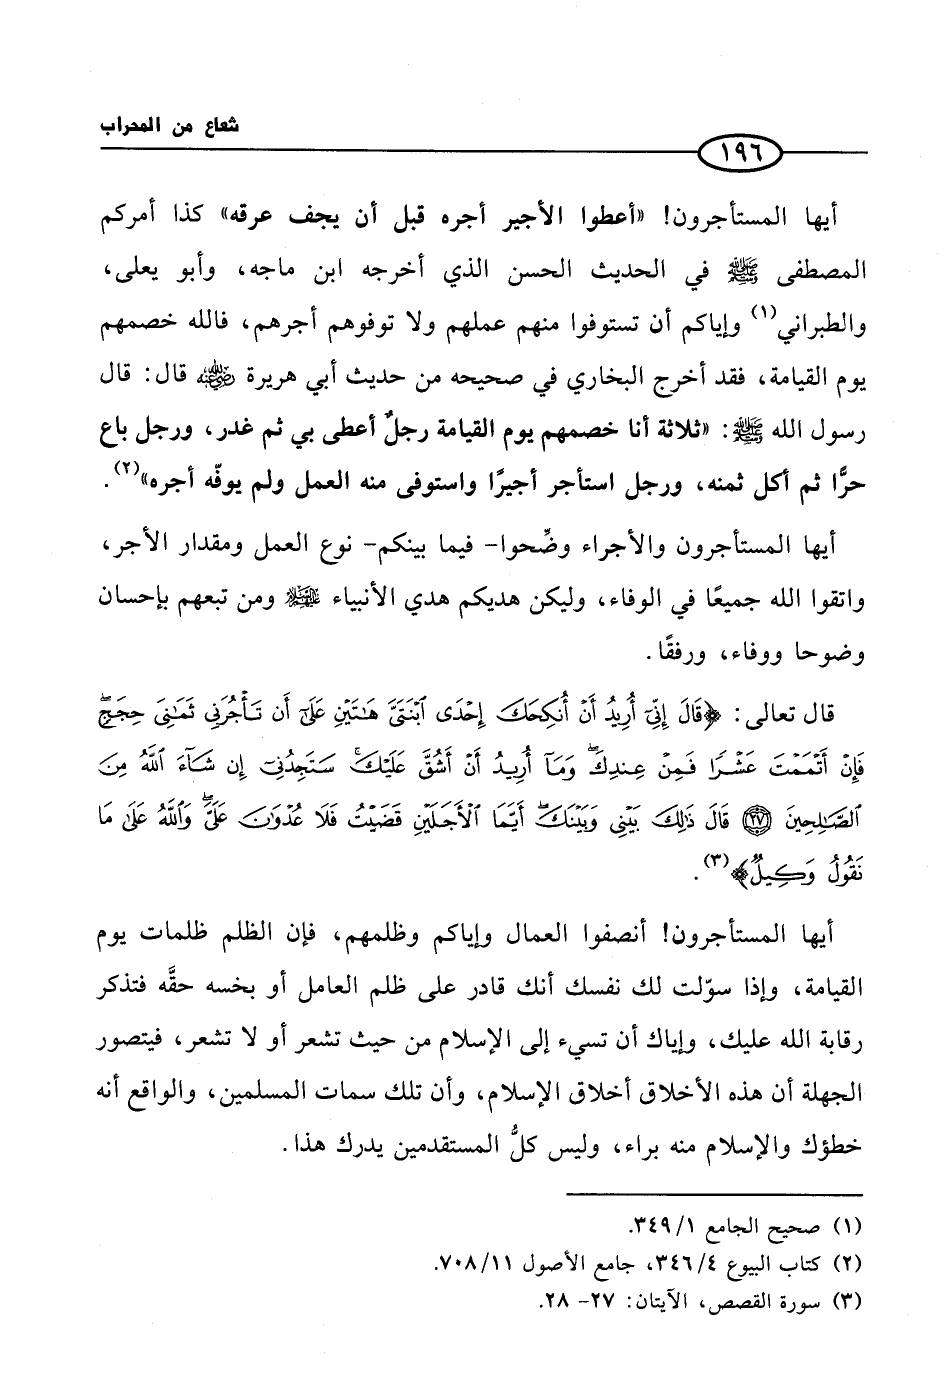 شعاع من المحراب
١٩٦
أيها المستأجرون! «أعطوا الأجير أجره قبل أن يجف عرقه» كذا أمركم
المصطفى ﷺ في الحديث الحسن الذي أخرجه ابن ماجه، وأبو يعلى،
والطبراني(١) وإياكم أن تستوفوا منهم عملهم ولا توفوهم أجرهم، فالله خصمهم
يوم القيامة، فقد أخرج البخاري في صحيحه من حديث أبي هريرة رضي الله عنه قال: قال
رسول الله ﷺ: «ثلاثة أنا خصمهم يوم القيامة رجلٌ أعطى بي ثم غدر، ورجل باع
حرًّا ثم أكل ثمنه، ورجل استأجر أجيرًا واستوفى منه العمل ولم يوفّه أجره»(٢).
أيها المستأجرون والأجراء وضِّحوا- فيما بينكم- نوع العمل ومقدار الأجر،
واتقوا الله جميعًا في الوفاء، وليكن هديكم هدي الأنبياء عليهم السلام ومن تبعهم بإحسان
وضوحا ووفاء، ورفقًا.
قال تعالى: ﴿قَالَ إِنِّىٓ أُرِيدُ أَنْ أُنكِحَكَ إِحْدَى ٱبْنَتَىَّ هَـٰتَيْنِ عَلَىٰٓ أَن تَأْجُرَنِى ثَمَـٰنِىَ حِجَجٍۢ ۖ
فَإِنْ أَتْمَمْتَ عَشْرًا فَمِنْ عِندِكَ ۖ وَمَآ أُرِيدُ أَنْ أَشُقَّ عَلَيْكَ ۚ سَتَجِدُنِىٓ إِن شَآءَ ٱللَّهُ مِنَ
ٱلصَّـٰلِحِينَ ٢٧ قَالَ ذَٰلِكَ بَيْنِى وَبَيْنَكَ ۖ أَيَّمَا ٱلْأَجَلَيْنِ قَضَيْتُ فَلَا عُدْوَٰنَ عَلَىَّ ۖ وَٱللَّهُ عَلَىٰ مَا
نَقُولُ وَكِيلٌ﴾(٣).
أيها المستأجرون! أنصفوا العمال وإياكم وظلمهم، فإن الظلم ظلمات يوم
القيامة، وإذا سوّلت لك نفسك أنك قادر على ظلم العامل أو بخسه حقَّه فتذكر
رقابة الله عليك، وإياك أن تسيء إلى الإسلام من حيث تشعر أو لا تشعر، فيتصور
الجهلة أن هذه الأخلاق أخلاق الإسلام، وأن تلك سمات المسلمين، والواقع أنه
خطؤك والإسلام منه براء، وليس كلُّ المستقدمين يدرك هذا.
(١) صحيح الجامع ١/ ٣٤٩.
(٢) كتاب البيوع ٤/ ٣٤٦، جامع الأصول ١١/ ٧٠٨.
(٣) سورة القصص، الآيتان: ٢٧- ٢٨.